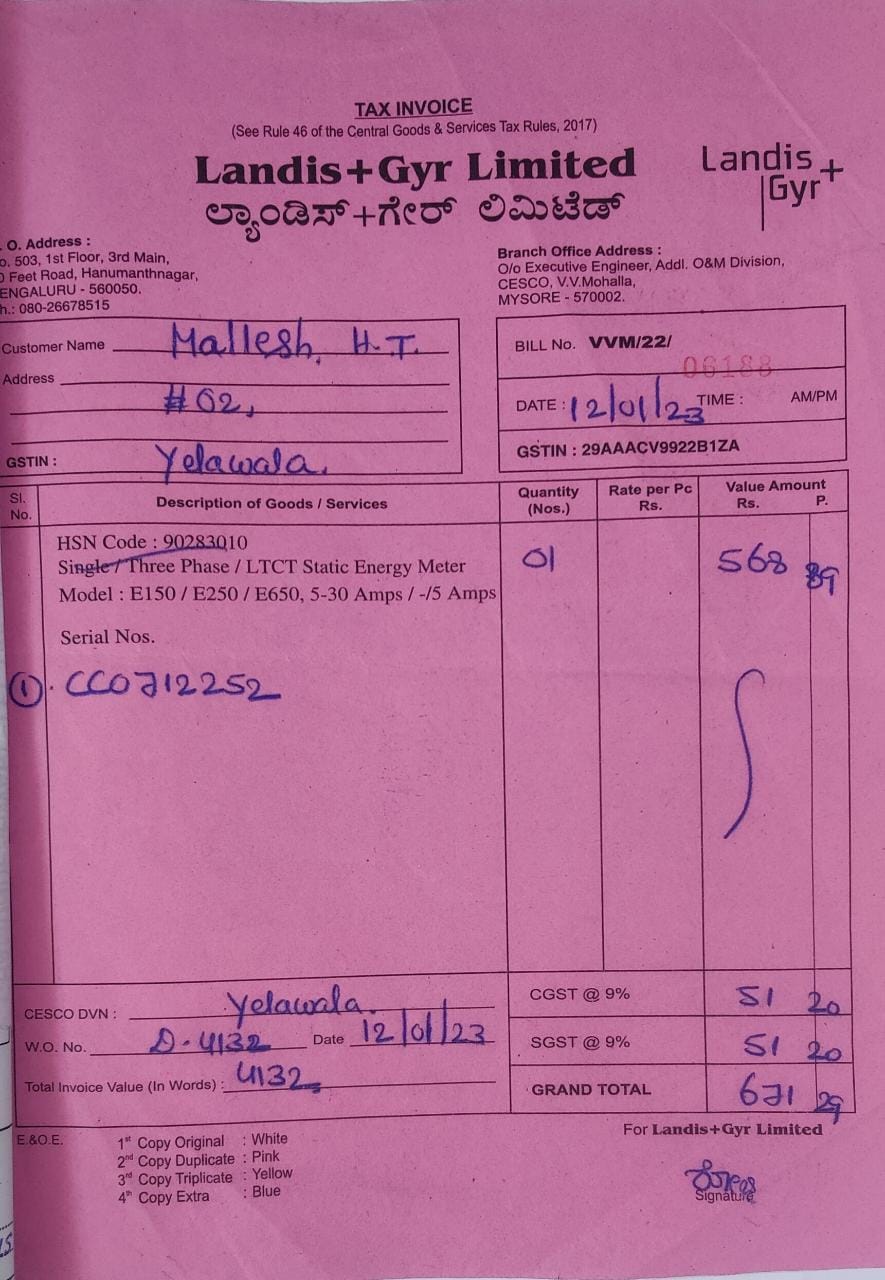 TAX INVOICE
(See Rule 46 of the Central Goods & Services Tax Rules, 2017)
Landis+Gyr Limited
ಲ್ಯಾಂಡಿಸ್+ಗೇರ್ ಲಿಮಿಟೆಡ್
Landis
Gyr+
. O. Address :
o. 503, 1st Floor, 3rd Main,
0 Feet Road, Hanumanthnagar,
ENGALURU - 560050.
h.: 080-26678515
Branch Office Address :
O/o Executive Engineer, Addl. O&M Division,
CESCO, V.V.Mohalla,
MYSORE - 570002.
Customer Name Mallesh. H.T.
Address
#02,
GSTIN : Yelawala.
BILL No. VVM/22/ 06188
DATE : 12/01/23 TIME : AM/PM
GSTIN : 29AAACV9922B1ZA
Sl. No. Description of Goods / Services Quantity (Nos.) Rate per Pc Rs. Value Amount Rs. P.
HSN Code : 90283010
Single / Three Phase / LTCT Static Energy Meter 01 568 89
Model : E150 / E250 / E650, 5-30 Amps / -/5 Amps
Serial Nos.
① CC0712252
CESCO DVN : Yelawala.
W.O. No. D-4132 Date 12/01/23
Total Invoice Value (In Words) : 4132
CGST @ 9% 51 20
SGST @ 9% 51 20
GRAND TOTAL 671 29
E.&O.E.
1st Copy Original : White
2nd Copy Duplicate : Pink
3rd Copy Triplicate : Yellow
4th Copy Extra : Blue
For Landis+Gyr Limited
Signature